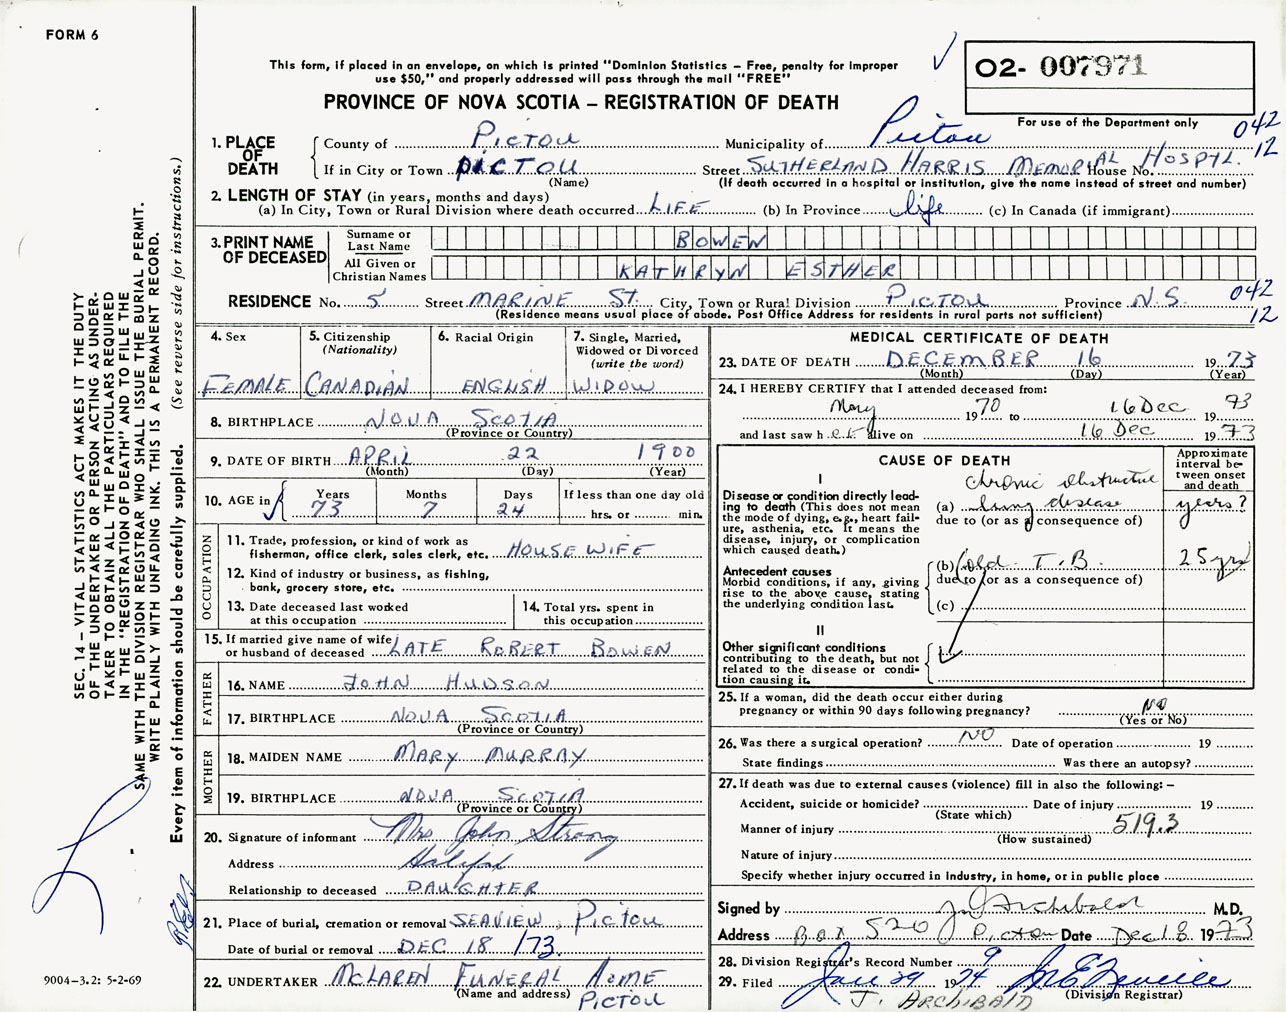 FORM 6
This form, if placed in an envelope, on which is printed "Dominion Statistics – Free, penalty for improper
use $50," and properly addressed will pass through the mail "FREE"
PROVINCE OF NOVA SCOTIA – REGISTRATION OF DEATH
02- 007971
For use of the Department only
042
12
1. PLACE OF DEATH
County of PICTOU Municipality of Pictou
If in City or Town PICTOU Street SUTHERLAND HARRIS MEMORIAL HOSPTL. House No.
(Name) (If death occurred in a hospital or institution, give the name instead of street and number)
2. LENGTH OF STAY (in years, months and days)
(a) In City, Town or Rural Division where death occurred LIFE (b) In Province life (c) In Canada (if immigrant)
3. PRINT NAME OF DECEASED
Surname or Last Name BOWEN
All Given or Christian Names KATHRYN ESTHER
RESIDENCE No. 5 Street MARINE ST. City, Town or Rural Division PICTOU Province N.S. 042
(Residence means usual place of abode. Post Office Address for residents in rural parts not sufficient) 12
4. Sex FEMALE
5. Citizenship (Nationality) CANADIAN
6. Racial Origin ENGLISH
7. Single, Married, Widowed or Divorced (write the word) WIDOW
8. BIRTHPLACE NOVA SCOTIA
(Province or Country)
9. DATE OF BIRTH APRIL 22 1900
(Month) (Day) (Year)
10. AGE in Years 73 Months 7 Days 24 If less than one day old hrs. or min.
OCCUPATION
11. Trade, profession, or kind of work as
fisherman, office clerk, sales clerk, etc. HOUSEWIFE
12. Kind of industry or business, as fishing,
bank, grocery store, etc.
13. Date deceased last worked
at this occupation
14. Total yrs. spent in
this occupation
15. If married give name of wife
or husband of deceased LATE ROBERT BOWEN
FATHER
16. NAME JOHN HUDSON
17. BIRTHPLACE NOVA SCOTIA
(Province or Country)
MOTHER
18. MAIDEN NAME MARY MURRAY
19. BIRTHPLACE NOVA SCOTIA
(Province or Country)
20. Signature of informant Mrs John Strong
Address Halifax
Relationship to deceased DAUGHTER
21. Place of burial, cremation or removal SEAVIEW, PICTOU
Date of burial or removal DEC 18 /73
22. UNDERTAKER McLAREN FUNERAL HOME
(Name and address) PICTOU
MEDICAL CERTIFICATE OF DEATH
23. DATE OF DEATH DECEMBER 16 1973
(Month) (Day) (Year)
24. I HEREBY CERTIFY that I attended deceased from:
May 1970 to 16 Dec 1973
and last saw her alive on 16 Dec 1973
CAUSE OF DEATH
Approximate interval be-
tween onset
and death
I
Disease or condition directly lead-
ing to death (This does not mean
the mode of dying, e.g., heart fail-
ure, asthenia, etc. It means the
disease, injury, or complication
which caused death.)
chronic obstructive
(a) lung disease years?
due to (or as a consequence of)
Antecedent causes
Morbid conditions, if any, giving
rise to the above cause, stating
the underlying condition last.
(b) old T.B. 25 yrs
due to (or as a consequence of)
(c)
II
Other significant conditions
contributing to the death, but not
related to the disease or condi-
tion causing it.
25. If a woman, did the death occur either during
pregnancy or within 90 days following pregnancy? NO
(Yes or No)
26. Was there a surgical operation? NO Date of operation 19
State findings Was there an autopsy?
27. If death was due to external causes (violence) fill in also the following: –
Accident, suicide or homicide? Date of injury 19
(State which)
Manner of injury 519.3
(How sustained)
Nature of injury
Specify whether injury occurred in industry, in home, or in public place
Signed by J G Archibald M.D.
Address BOX 520 Pictou Date Dec 18 1973
28. Division Registrar's Record Number 9
29. Filed Jan 29 1974
(Division Registrar)
J. ARCHIBALD
SEC. 14 – VITAL STATISTICS ACT MAKES IT THE DUTY
OF THE UNDERTAKER OR PERSON ACTING AS UNDER-
TAKER TO OBTAIN ALL THE PARTICULARS REQUIRED
IN THE "REGISTRATION OF DEATH" AND TO FILE THE
SAME WITH THE DIVISION REGISTRAR WHO SHALL ISSUE THE BURIAL PERMIT.
WRITE PLAINLY WITH UNFADING INK. THIS IS A PERMANENT RECORD.
Every item of information should be carefully supplied. (See reverse side for instructions.)
9004–3.2: 5-2-69